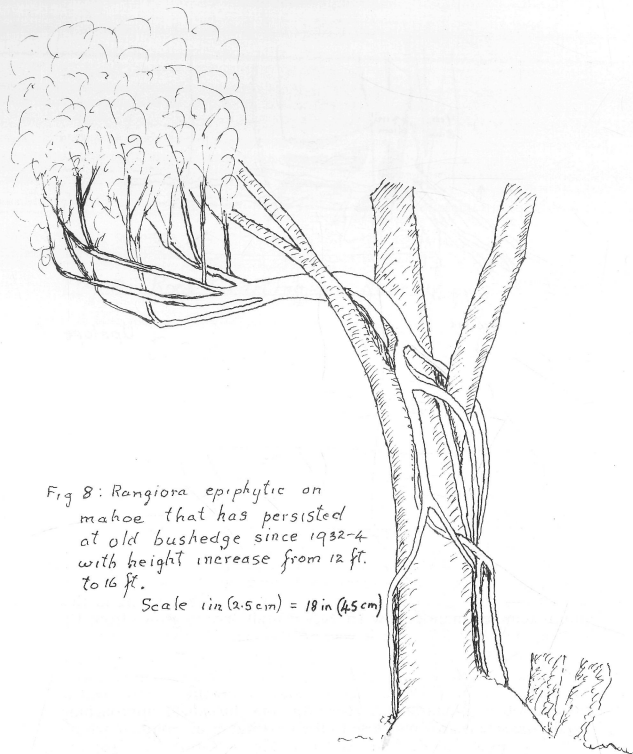 Fig 8: Rangiora epiphytic on
mahoe that has persisted
at old bushedge since 1932-4
with height increase from 12 ft.
to 16 ft.
Scale 1in (2.5cm) = 18 in (45cm)